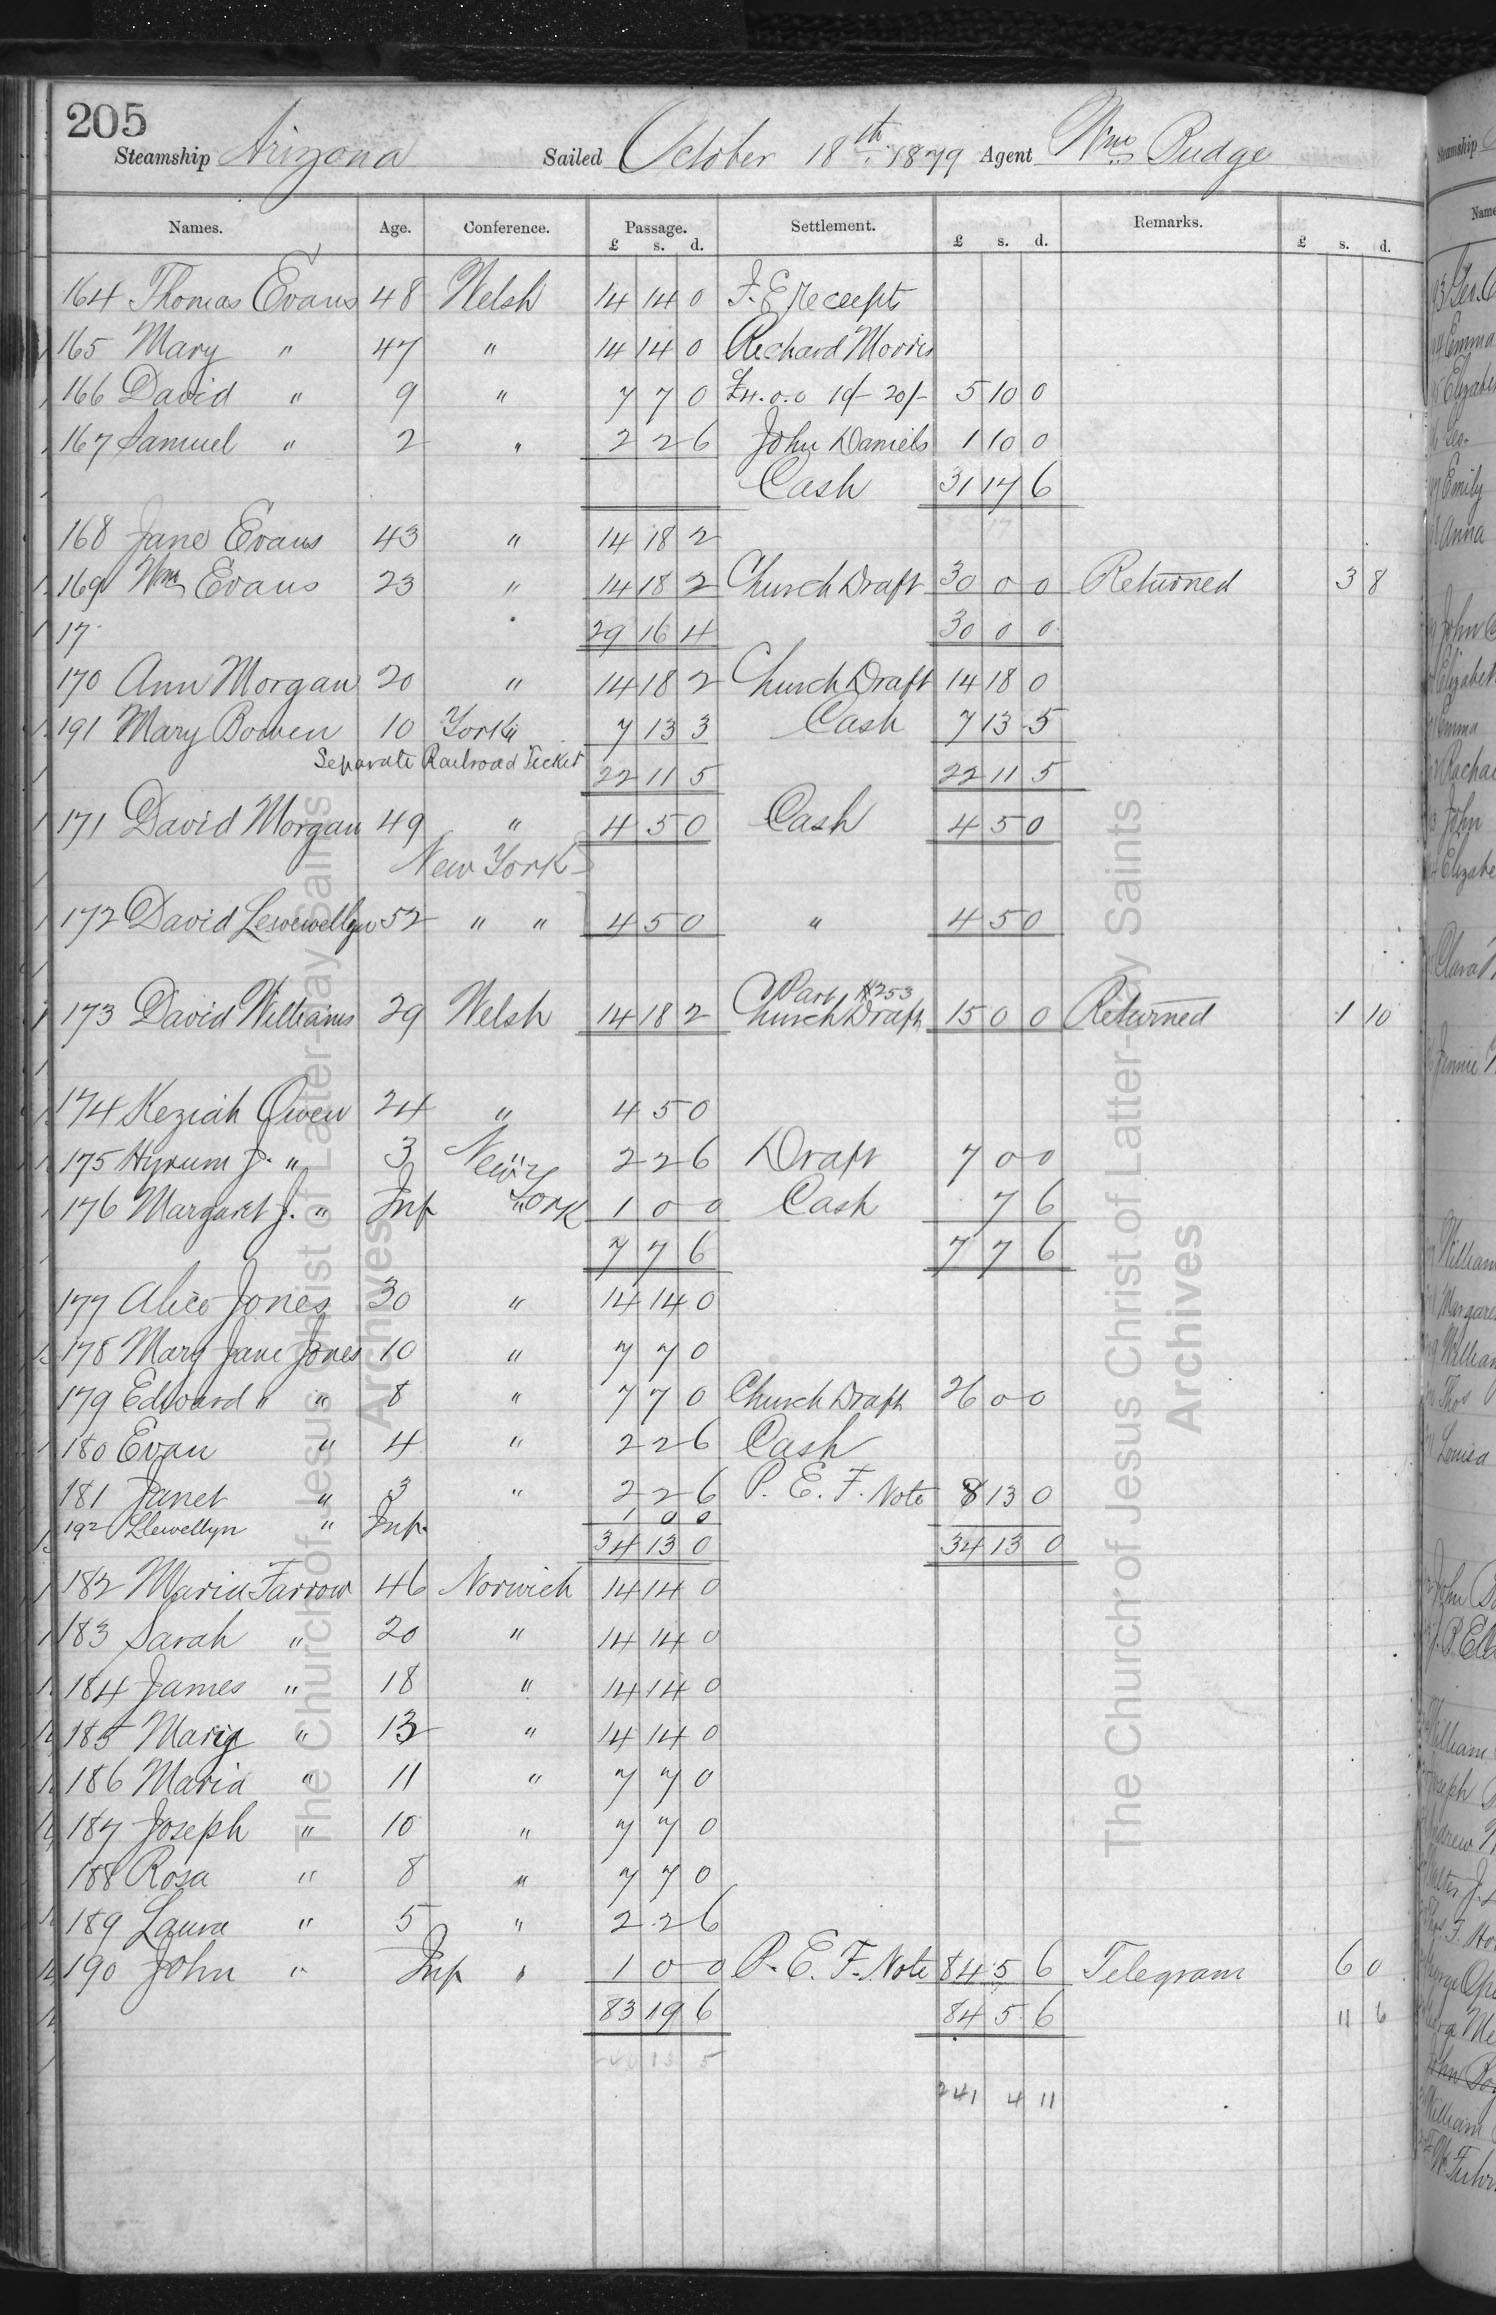 205
Steamship Arizona Sailed October 18th 1879 Agent Wm Budge
Names. Age. Conference. Passage. Settlement. Remarks.
£ s. d. £ s. d. £ s. d.
164 Thomas Evans 48 Welsh 14 14 0 I. E Receipts
165 Mary " 47 " 14 14 0 Richard Morris
166 David " 9 " 7 7 0 £4.0.0 10/- 20/- 5 10 0
167 Samuel " 2 " 2 2 6 John Daniels 1 10 0
Cash 31 17 6
168 Jane Evans 43 " 14 18 2
169 Wm Evans 23 " 14 18 2 Church Draft 30 0 0 Returned 3 8
17 " 29 16 4 30 0 0
170 Ann Morgan 20 " 14 18 2 Church Draft 14 18 0
191 Mary Bowen 10 York " 7 13 3 Cash 7 13 5
Separate Railroad Ticket 22 11 5 22 11 5
171 David Morgan 49 " 4 5 0 Cash 4 5 0
New York
172 David Lewewellyn 52 " " 4 5 0 " 4 5 0
Part #253
173 David Williams 29 Welsh 14 18 2 Church Draft 15 0 0 Returned 1 10
174 Keziah Owen 24 " 4 5 0
175 Hyrum J. " 3 New " 2 2 6 Draft 7 0 0
176 Margaret J. " Inf York " 1 0 0 Cash 7 6
7 7 6 7 7 6
177 Alice Jones 30 " 14 14 0
178 Mary Jane Jones 10 " 7 7 0
179 Edward " " 8 " 7 7 0 Church Draft 26 0 0
180 Evan " 4 " 2 2 6 Cash
181 Janet " 3 " 2 2 6 P. E. F. Note 8 13 0
192 Llewellyn " Inf. 1 0 0
34 13 0 34 13 0
182 Maria Farrow 46 Norwich 14 14 0
183 Sarah " 20 " 14 14 0
184 James " 18 " 14 14 0
185 Mary " 13 " 14 14 0
186 Maria " 11 " 7 7 0
187 Joseph " 10 " 7 7 0
188 Rosa " 8 " 7 7 0
189 Laura " 5 " 2 2 6
190 John " Inf " 1 0 0 P. E. F. Note 84 5 6 Telegram 6 0
83 19 6 84 5 6 11 6
241 4 11
The Church of Jesus Christ of Latter-day Saints
Archives
The Church of Jesus Christ of Latter-day Saints
Archives